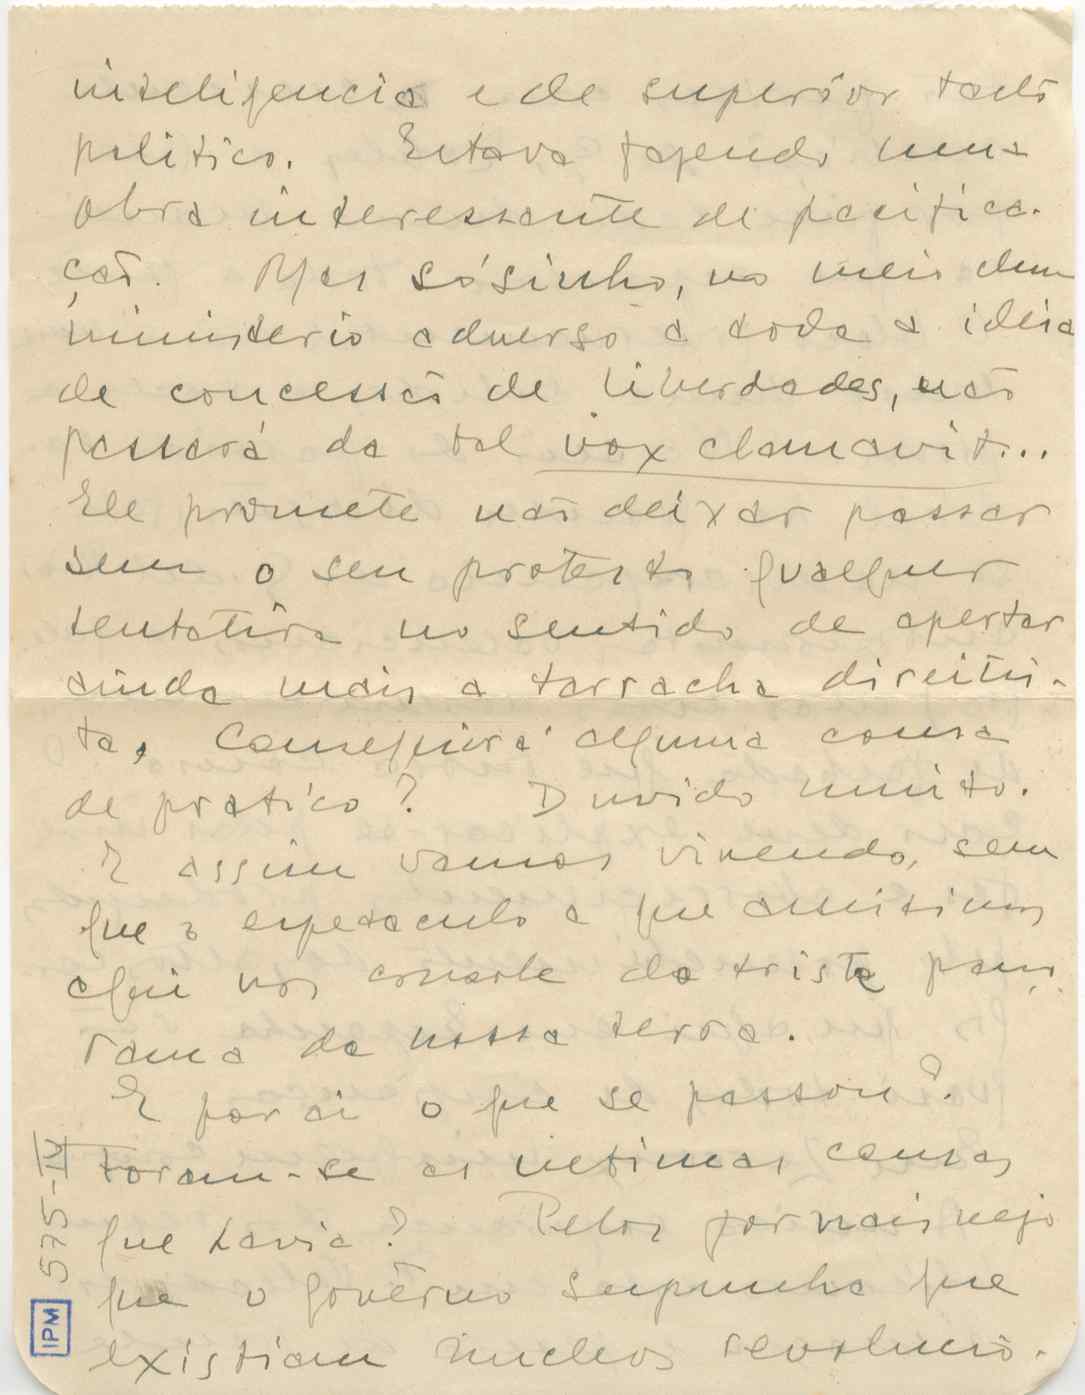 inteligencia e de superior tacto
politico. Estava fazendo uma
obra interessante de pacifica-
ção. Mas sósinho, no meio dum
ministerio adverso a toda a ideia
de concessão de liberdades, não
passará da tal vox clamavit...
Ele promete não deixar passar
sem o seu protesto qualquer
tentativa no sentido de apertar
ainda mais a tarracha direitis-
ta. Conseguirá alguma cousa
de pratico? Duvido muito.
E assim vamos vivendo, sem
que o espetaculo a que assistimos
aqui nos console do triste pano-
rama da nossa terra.
E por ai o que se passou?
Foram-se as ultimas cousas
que havia? Pelos jornais vejo
que o govêrno supunha que
existiam nucleos revolucio-
575-IV
IPM